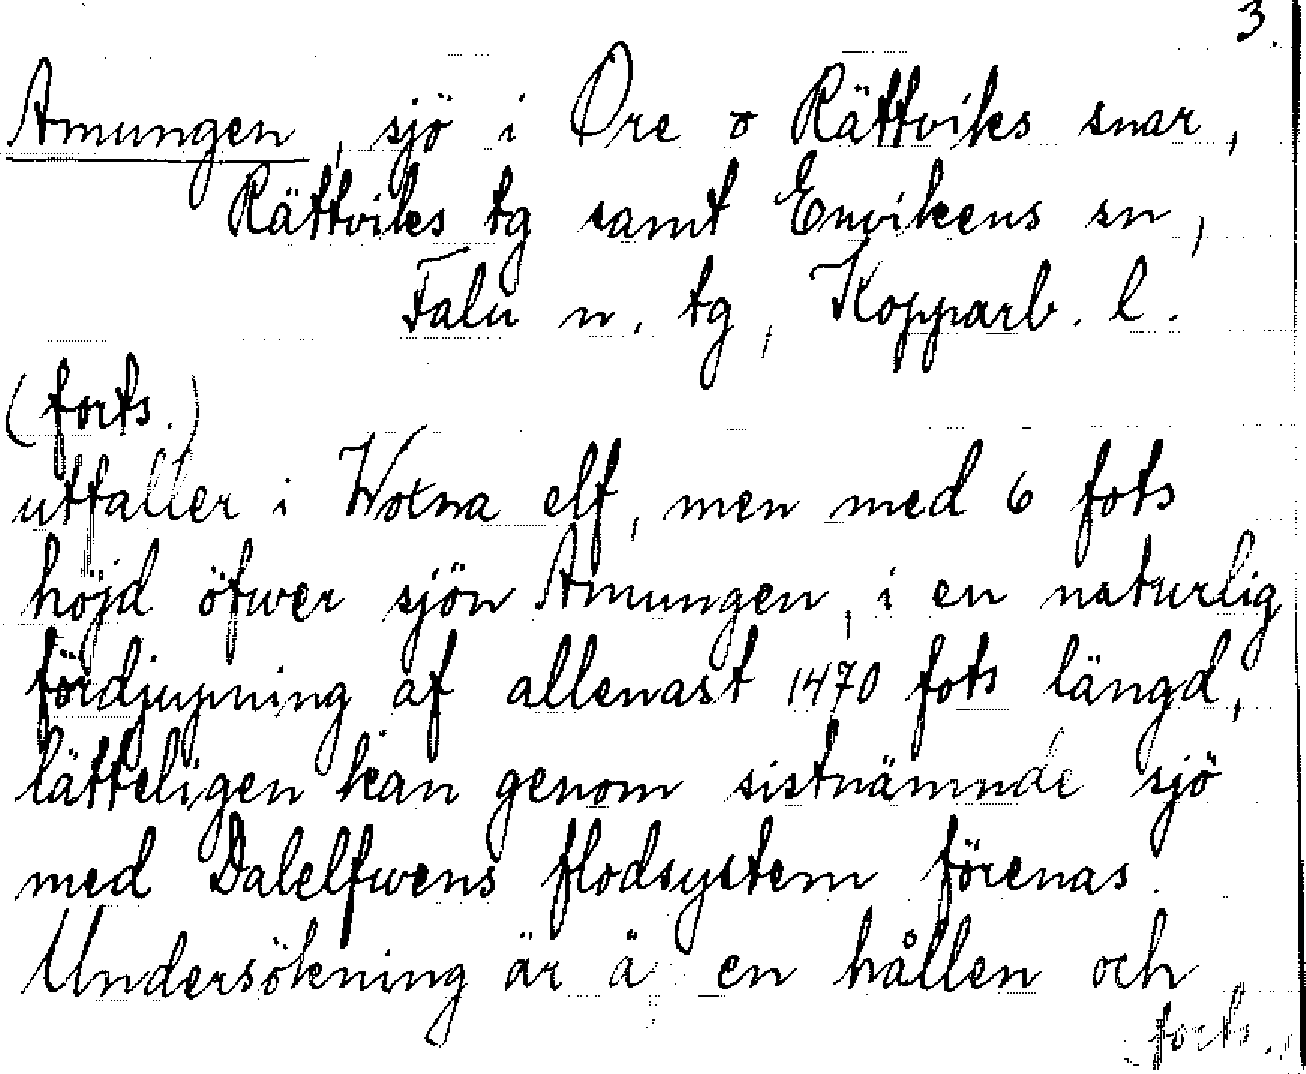 3.
Amungen, sjö i Ore o Rättviks snar,
Rättviks tg samt Envikens sn,
Falu n. tg, Kopparb. l.
(forts.)
utfaller i Woxna elf, men med 6 fots
höjd öfwer sjön Amungen, i en naturlig
fördjupning af allenast 1470 fots längd,
lätteligen kan genom sistnämnde sjö
med Dalelfwens flodsystem förenas.
Undersökning är å en hållen och
forts.